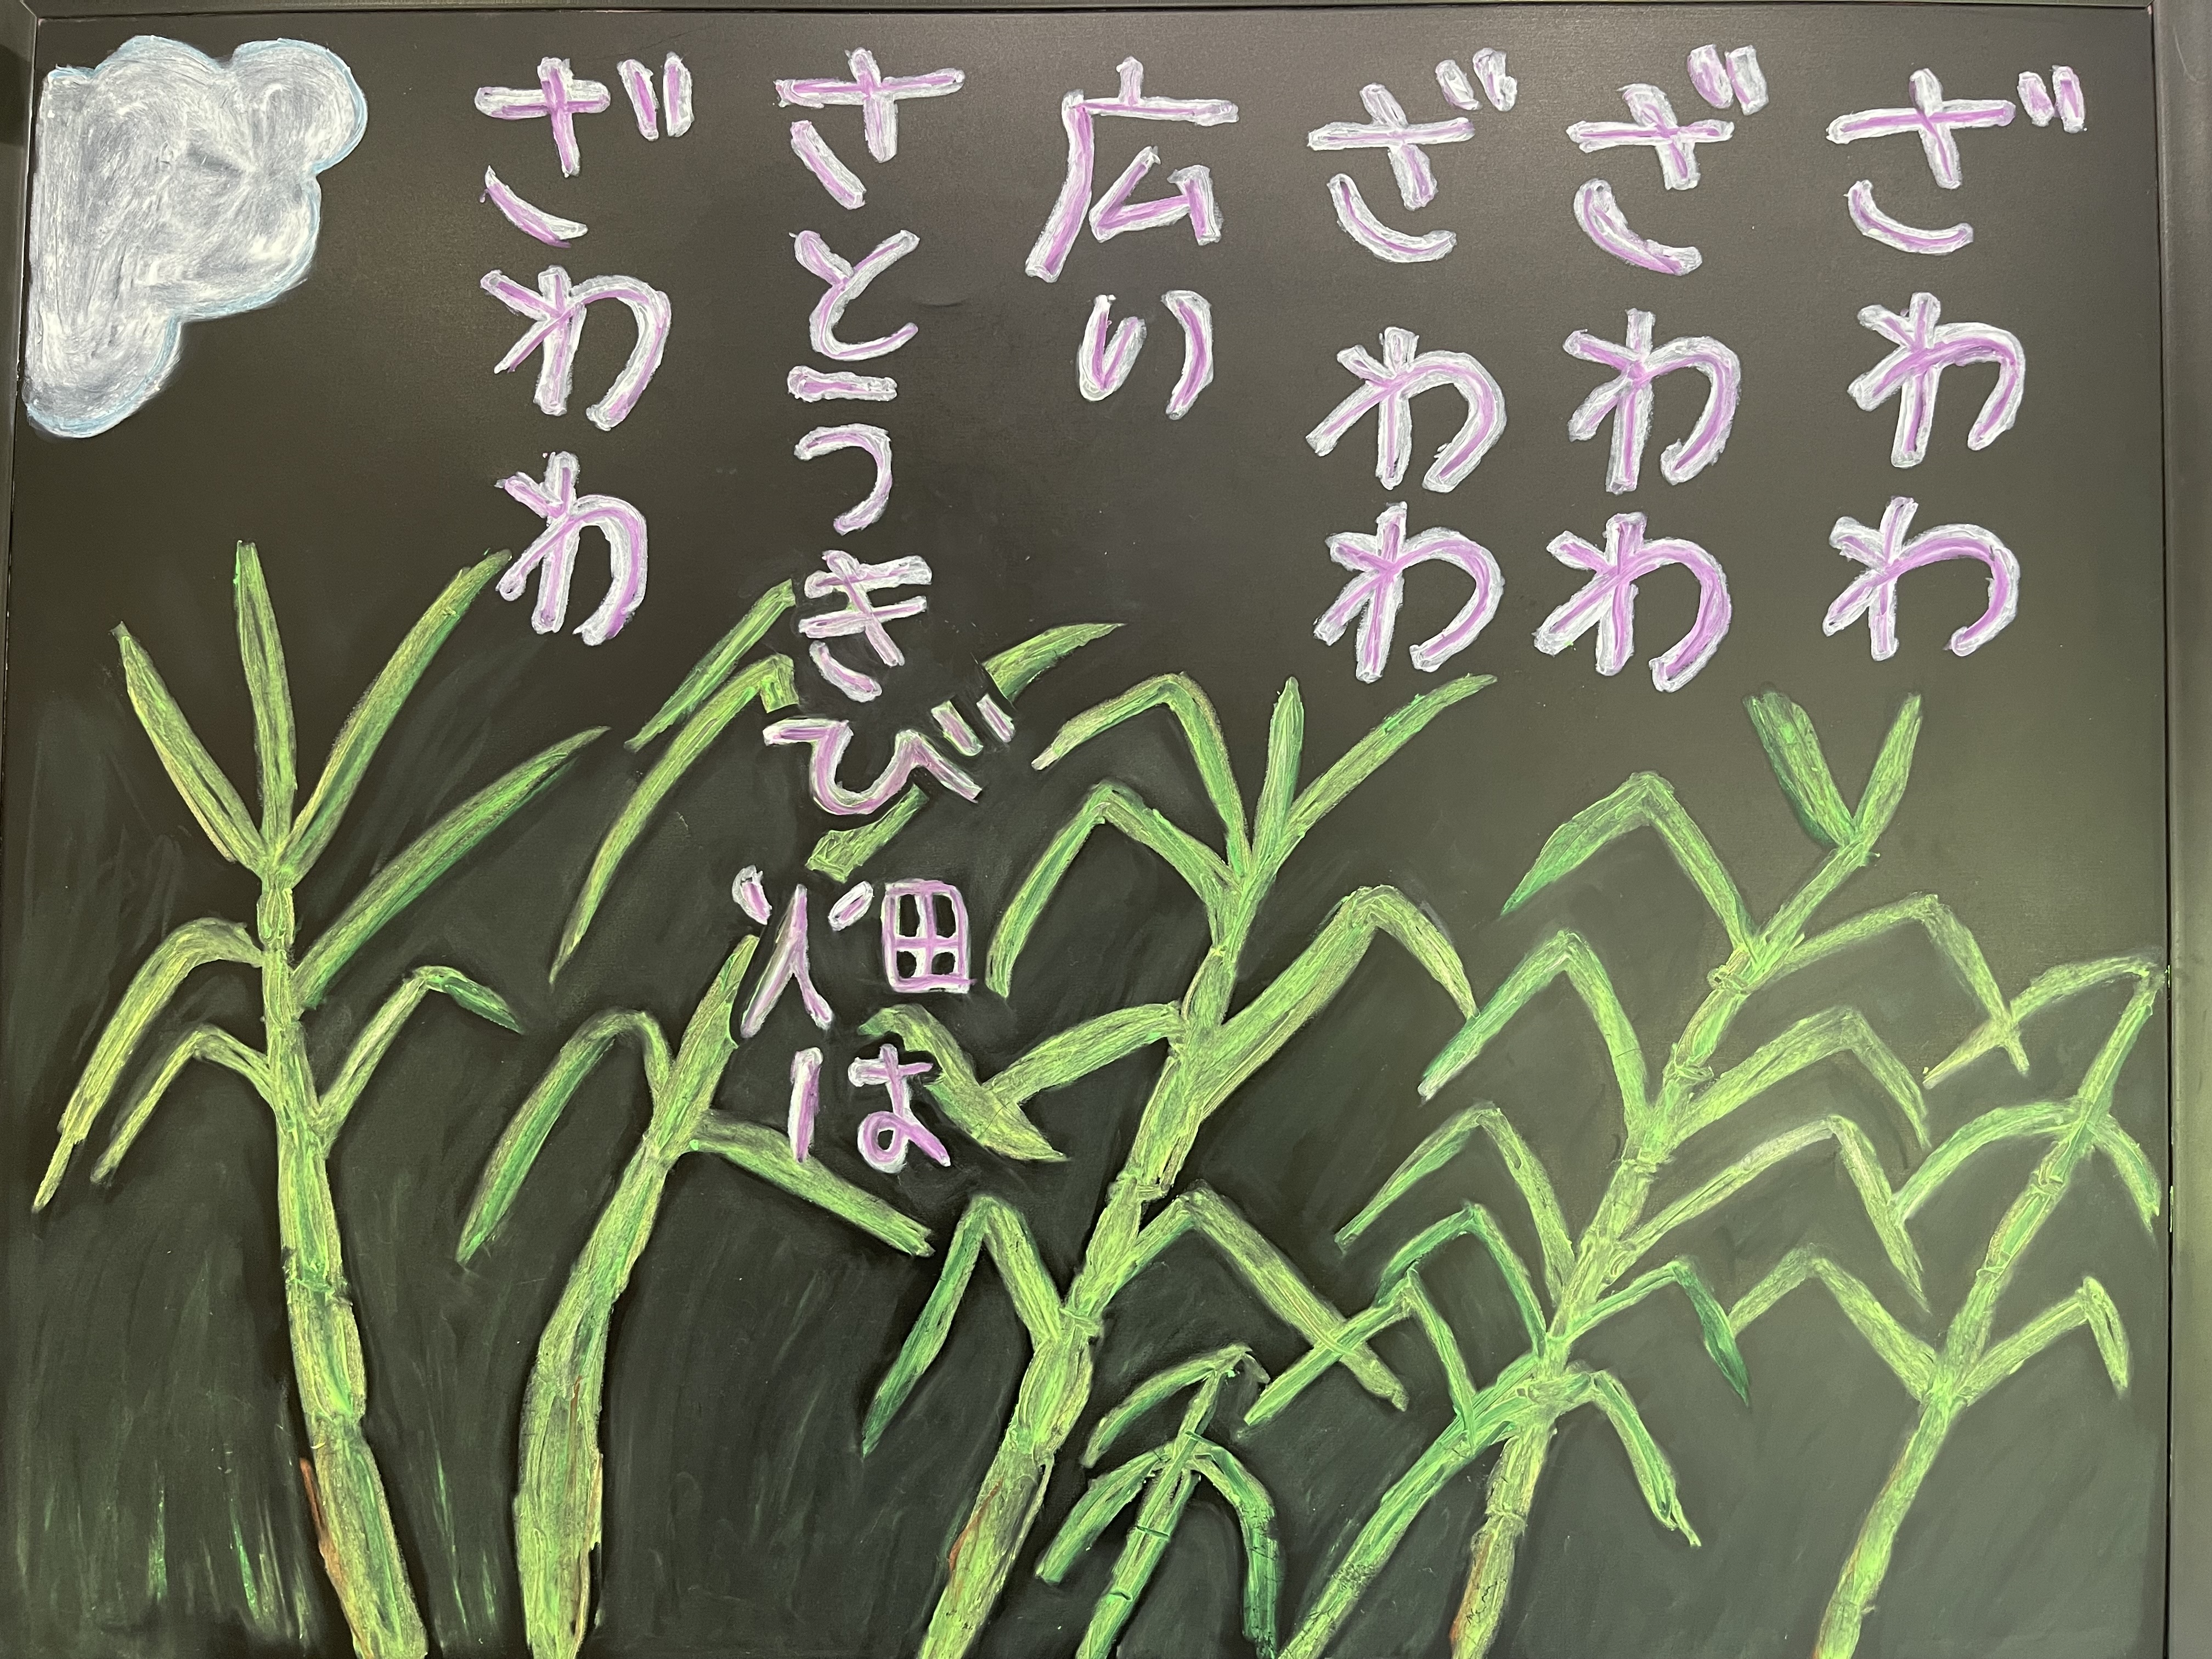 ざわわ
ざわわ
ざわわ
広い
さとうきび畑は
ざわわ